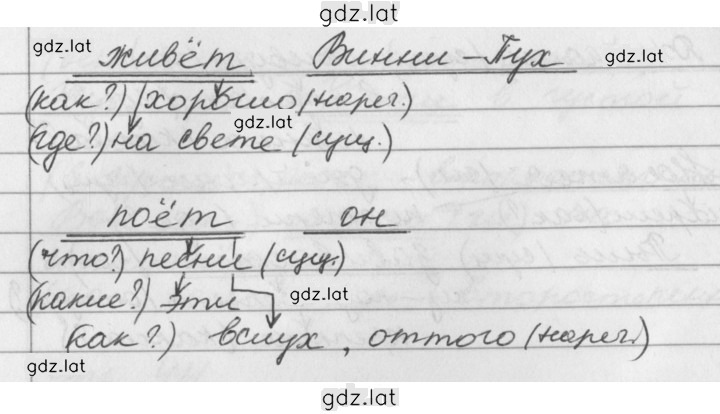 gdz.lat
gdz.lat живёт Винни-Пух gdz.lat
(как?) хорошо (нареч.)
gdz.lat
(где?) на свете (сущ.)
поёт он
(что?) песни (сущ.)
(какие?) эти gdz.lat
(как?) вслух, оттого (нареч.)
gdz.lat gdz.lat
gdz.lat